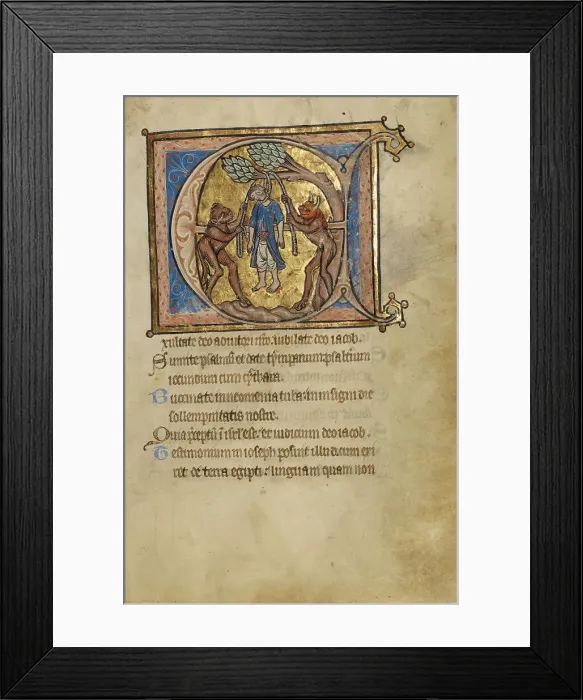 Exultate deo adiutori nr̃o. iubilate deo iacob.
Sumite psalmũ et date tẏmpanum psalt̃ium
iocundum cum cẏthara.
Buccinate in neomenia tuba: in insigni die
sollempnitatis nostre.
Quia p̃ceptũ ĩ isr̃l est: et iudicium deo iacob.
Testimonium in ioseph posuit illud cum exi
ret de terra egipti: linguam quam non